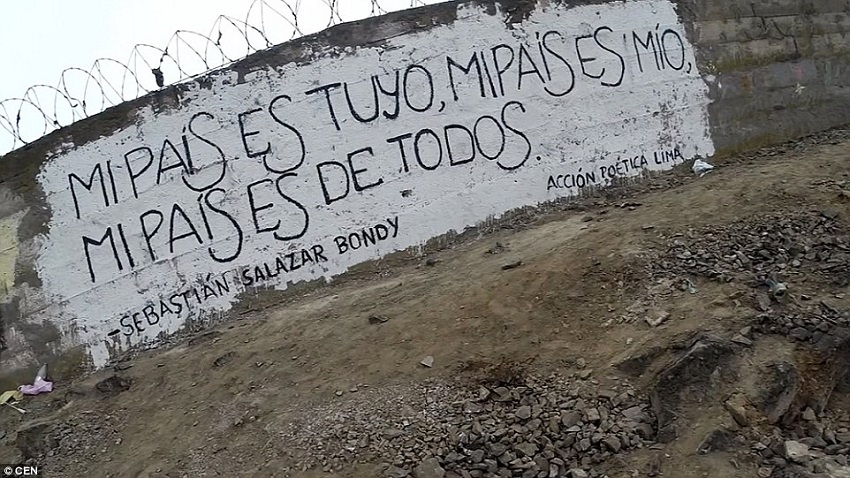 MI PAÍS ES TUYO, MI PAÍS ES MÍO,
MI PAÍS ES DE TODOS.
-SEBASTIÁN SALAZAR BONDY
ACCIÓN POÉTICA LIMA
© CEN